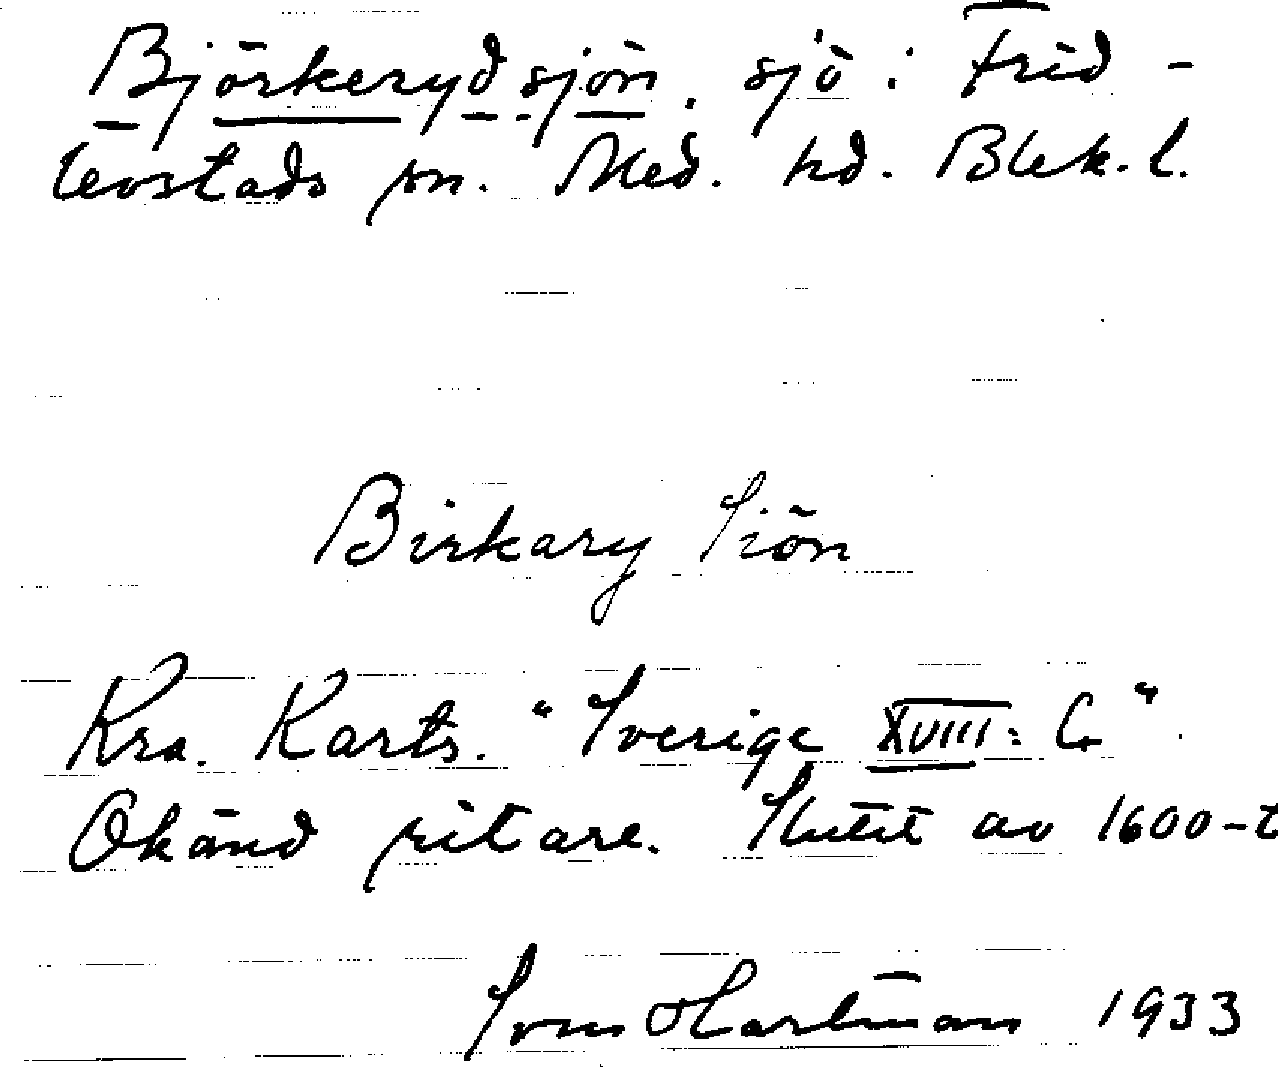 Björkerydsjön, sjö i Frid-
levstads sn. Med. hd. Blek. l.
Birkary Siön
Kra. Karts. "Sverige XVIII: C."
Okänd ritare. Slutet av 1600-t
Sven Hartman 1933